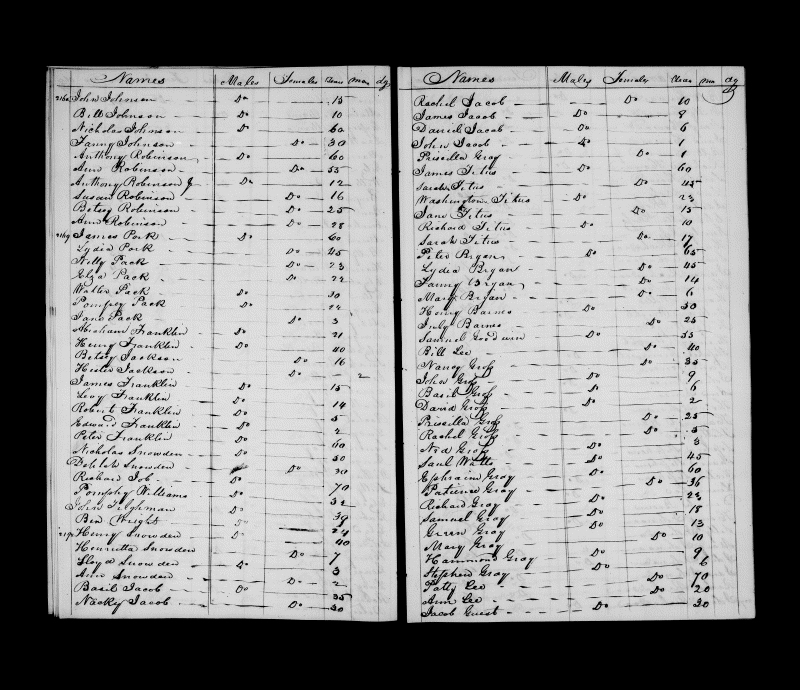 Names Males Females Years mos dy
John Johnson Do 15
Bill Johnson Do 10
Nicholas Johnson Do 60
Fanny Johnson Do 30
Anthony Robinson Do 60
Ann Robinson Do 55
Anthony Robinson Jr Do 12
Susan Robinson Do 16
Betsey Robinson Do 25
Ann Robinson Do 28
James Pork Do 60
Lydia Pork Do 45
Hilly Pack Do 23
Eliza Pack Do 22
Walter Pack Do 30
Pompey Pack Do
Jane Pack Do 3
Abraham Franklin Do 21
Henry Franklin Do 40
Betsey Jackson Do 16
Hester Jackson Do 2
James Franklin Do 15
Levy Franklin Do 14
Robert Franklin Do 5
Edward Franklin Do 2
Peter Franklin Do 60
Nicholas Snowden Do 50
Delilah Snowden Do 30
Richard Job Do 70
Pomphy Williams Do 32
John Tilghman Do 39
Ben Wright Do 24
Henry Snowden Do 40
Henrietta Snowden Do 7
Lloyd Snowden Do 3
Ann Snowden Do 2
Basil Jacob Do 35
Nacky Jacob Do 30
Names Males Females Years mo dy
Rachel Jacob Do 10
James Jacob Do 8
Daniel Jacob Do 6
John Jacob Do 1
Priscilla Gray Do 1
James Titus Do 60
Sarah Titus Do 45
Washington Titus Do 23
Jane Titus Do 15
Richard Titus Do 10
Sarah Titus Do 17
Peter Bryan Do 65
Lydia Bryan Do 45
Fanny Bryan Do 14
Mary Bryan Do 6
Henry Barnes Do 30
July Barnes Do 25
Samuel Goodwin Do 35
Bill Lee Do 40
Nancy Gross Do 35
John Gross Do 9
Basil Gross Do 6
David Gross Do 2
Priscilla Gross Do 25
Rachel Gross Do 5
Ned Gross Do 3
Saul Watts Do 45
Ephraim Gray Do 60
Patience Gray Do 36
Richard Gray Do 23
Samuel Gray Do 18
Green Gray Do 13
Mary Gray Do 10
Hammond Gray Do 9
Stephen Gray Do 6
Patty Lee Do 70
Ann Lee Do 20
Jacob Guest Do 30